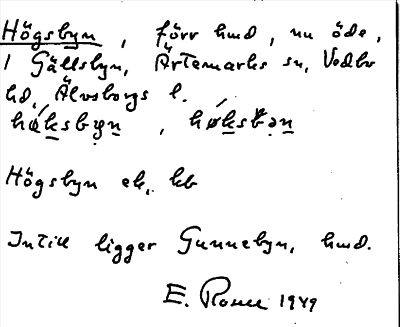 Högsbyn, förr hmd, nu öde,
1 Gällsbyn, Ärtemarks sn, Vedbo
hd, Älvsborgs l.
hǿksbyn, hǿksbən
Högsbyn ek. kb
Intill ligger Gunnebyn, hmd.
E. 1949